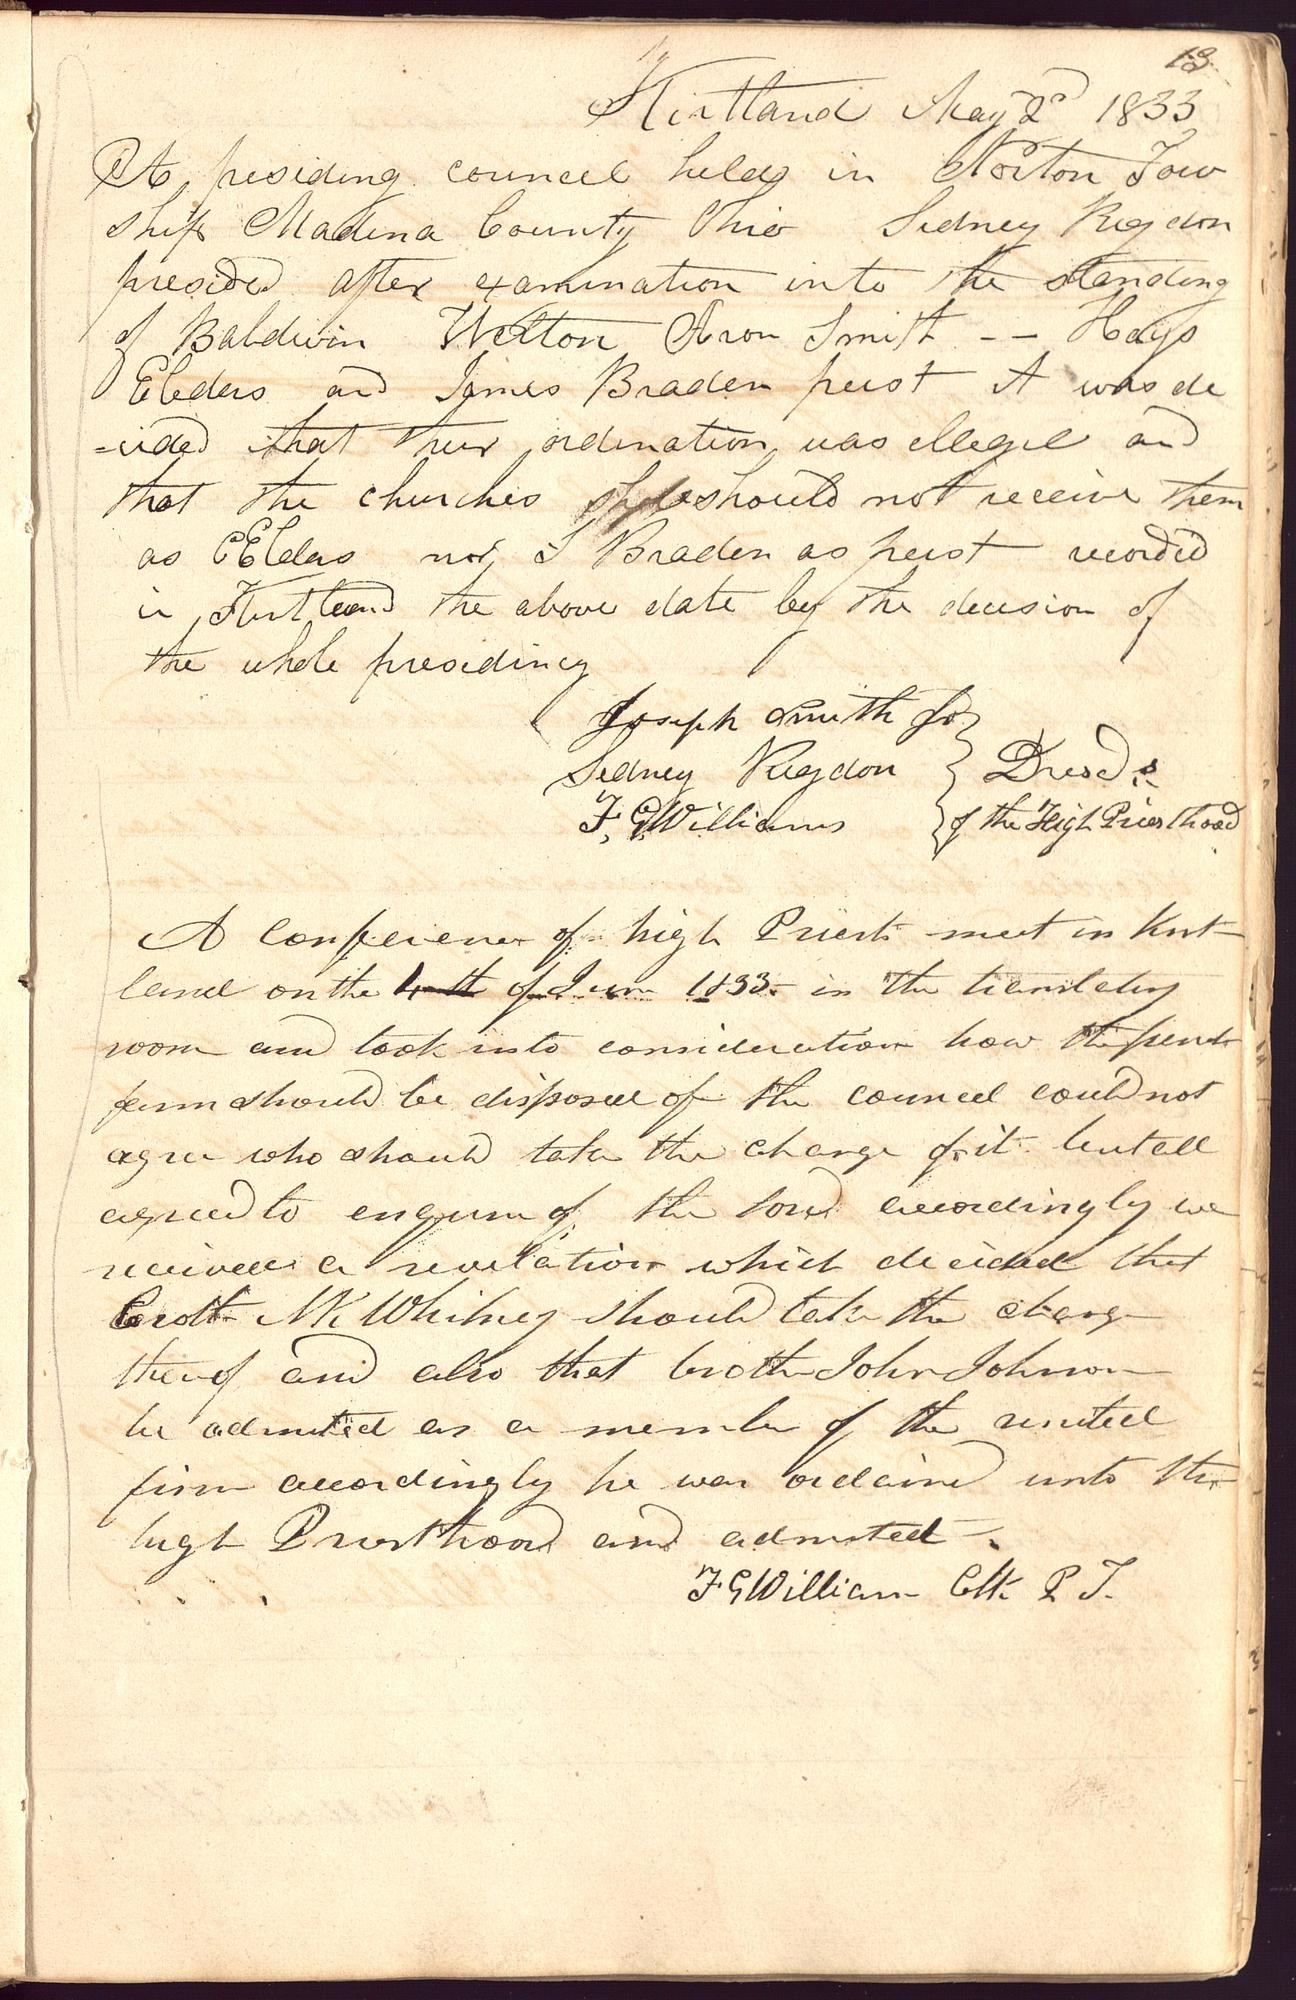 13
Kirtland May 2d 1833
At, presiding councel held in Norton Tow
ship Madina County Ohio Sidney Rigdon
presided after examination into the standing
of Baldwin Welton Aron Smith -- Hays
Elders and James Braden preist it was de
=cided that ther ordination was ellegel and
that the churches should not receive them
as Elders nor J Braden as preist recorded
in Kirtland the above date by the decision of
the whole presidincy
Joseph Smith Jr
Sidney Rigdon } Presds
F, G, Williams } of the High Priesthood
A conference of high Priests meet in Kirt-
land on the 4th of June 1833- in the translating
room and took into consideration how the french
farm should be disposed of the councel could not
agree who should take the charge of it but all
agreed to enquire of the Lord accordingly we
received a revelation which decided that
broth N K Whitney should take the charge
thereof and also that brother John Johnson
be admitted as a member of the united
firm accordingly he was ordained unto the
high Priesthood and admitted-
F G Williams Clk P T.